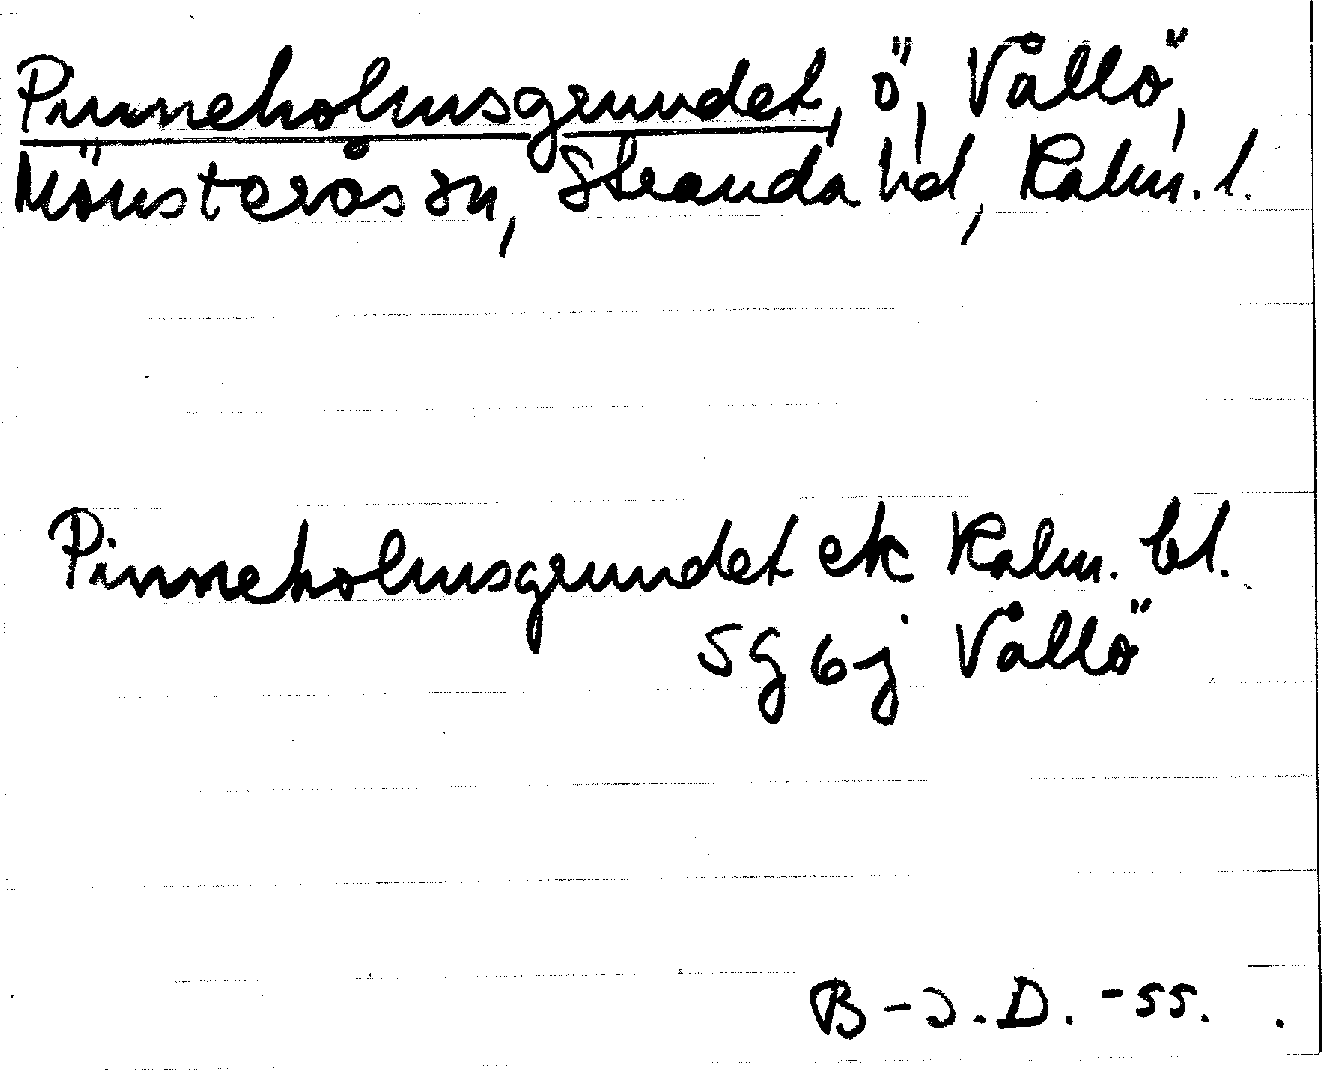 Pinneholmsgrundet, ö, Vållö,
Mönsterås sn, Stranda hd, Kalm. l.
Pinneholmsgrundet ek Kalm. bl.
5g 6j Vållö
B-J.D. -55.